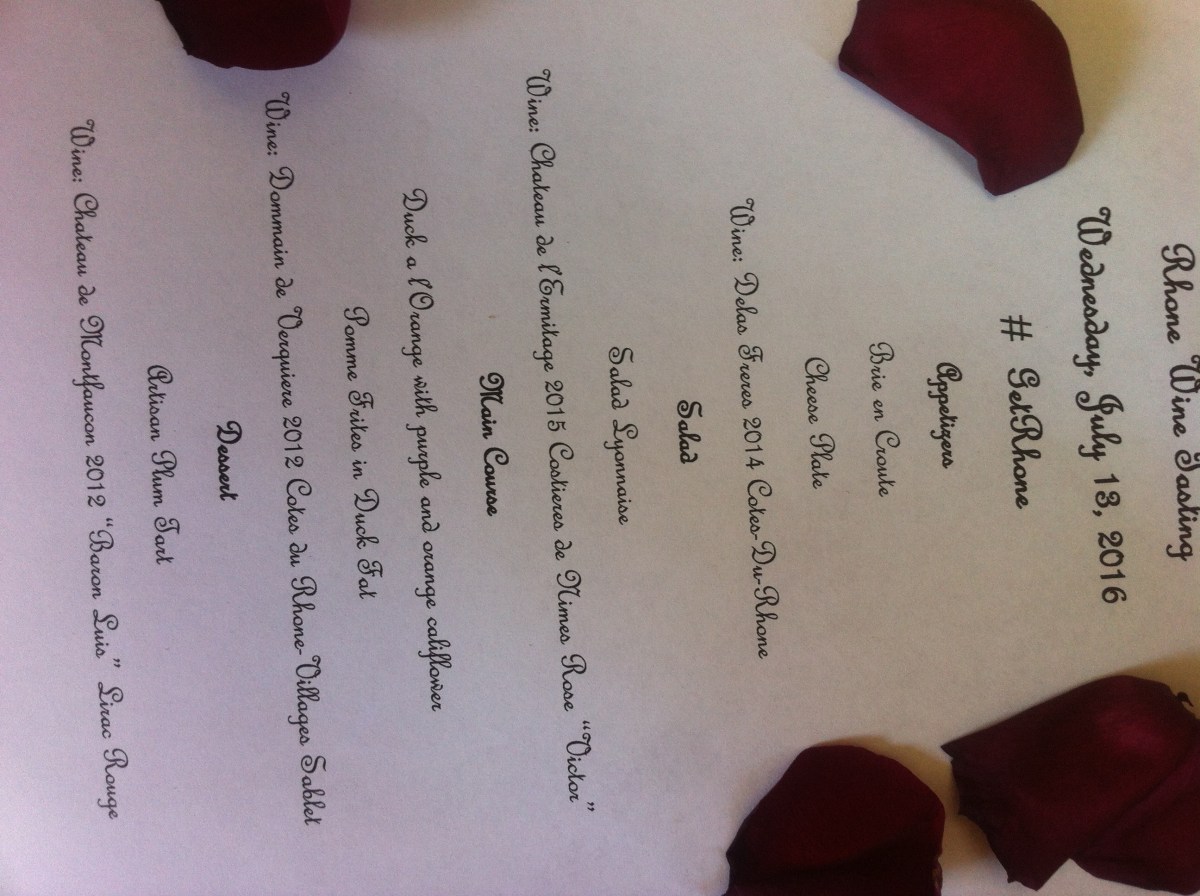 Rhone Wine Tasting
Wednesday, July 13, 2016
# GetRhone
Appetizers
Brie en Croute
Cheese Plate
Wine: Delas Freres 2014 Cotes-Du-Rhone
Salad
Salad Lyonnaise
Wine: Chateau de l'Ermitage 2015 Costieres de Nimes Rose "Victor"
Main Course
Duck a l'Orange with purple and orange califlower
Pomme Frites in Duck Fat
Wine: Dommain de Verquiere 2012 Cotes du Rhone-Villages Sablet
Dessert
Artisan Plum Tart
Wine: Chateau de Montfaucon 2012 "Baron Luis" Lirac Rouge